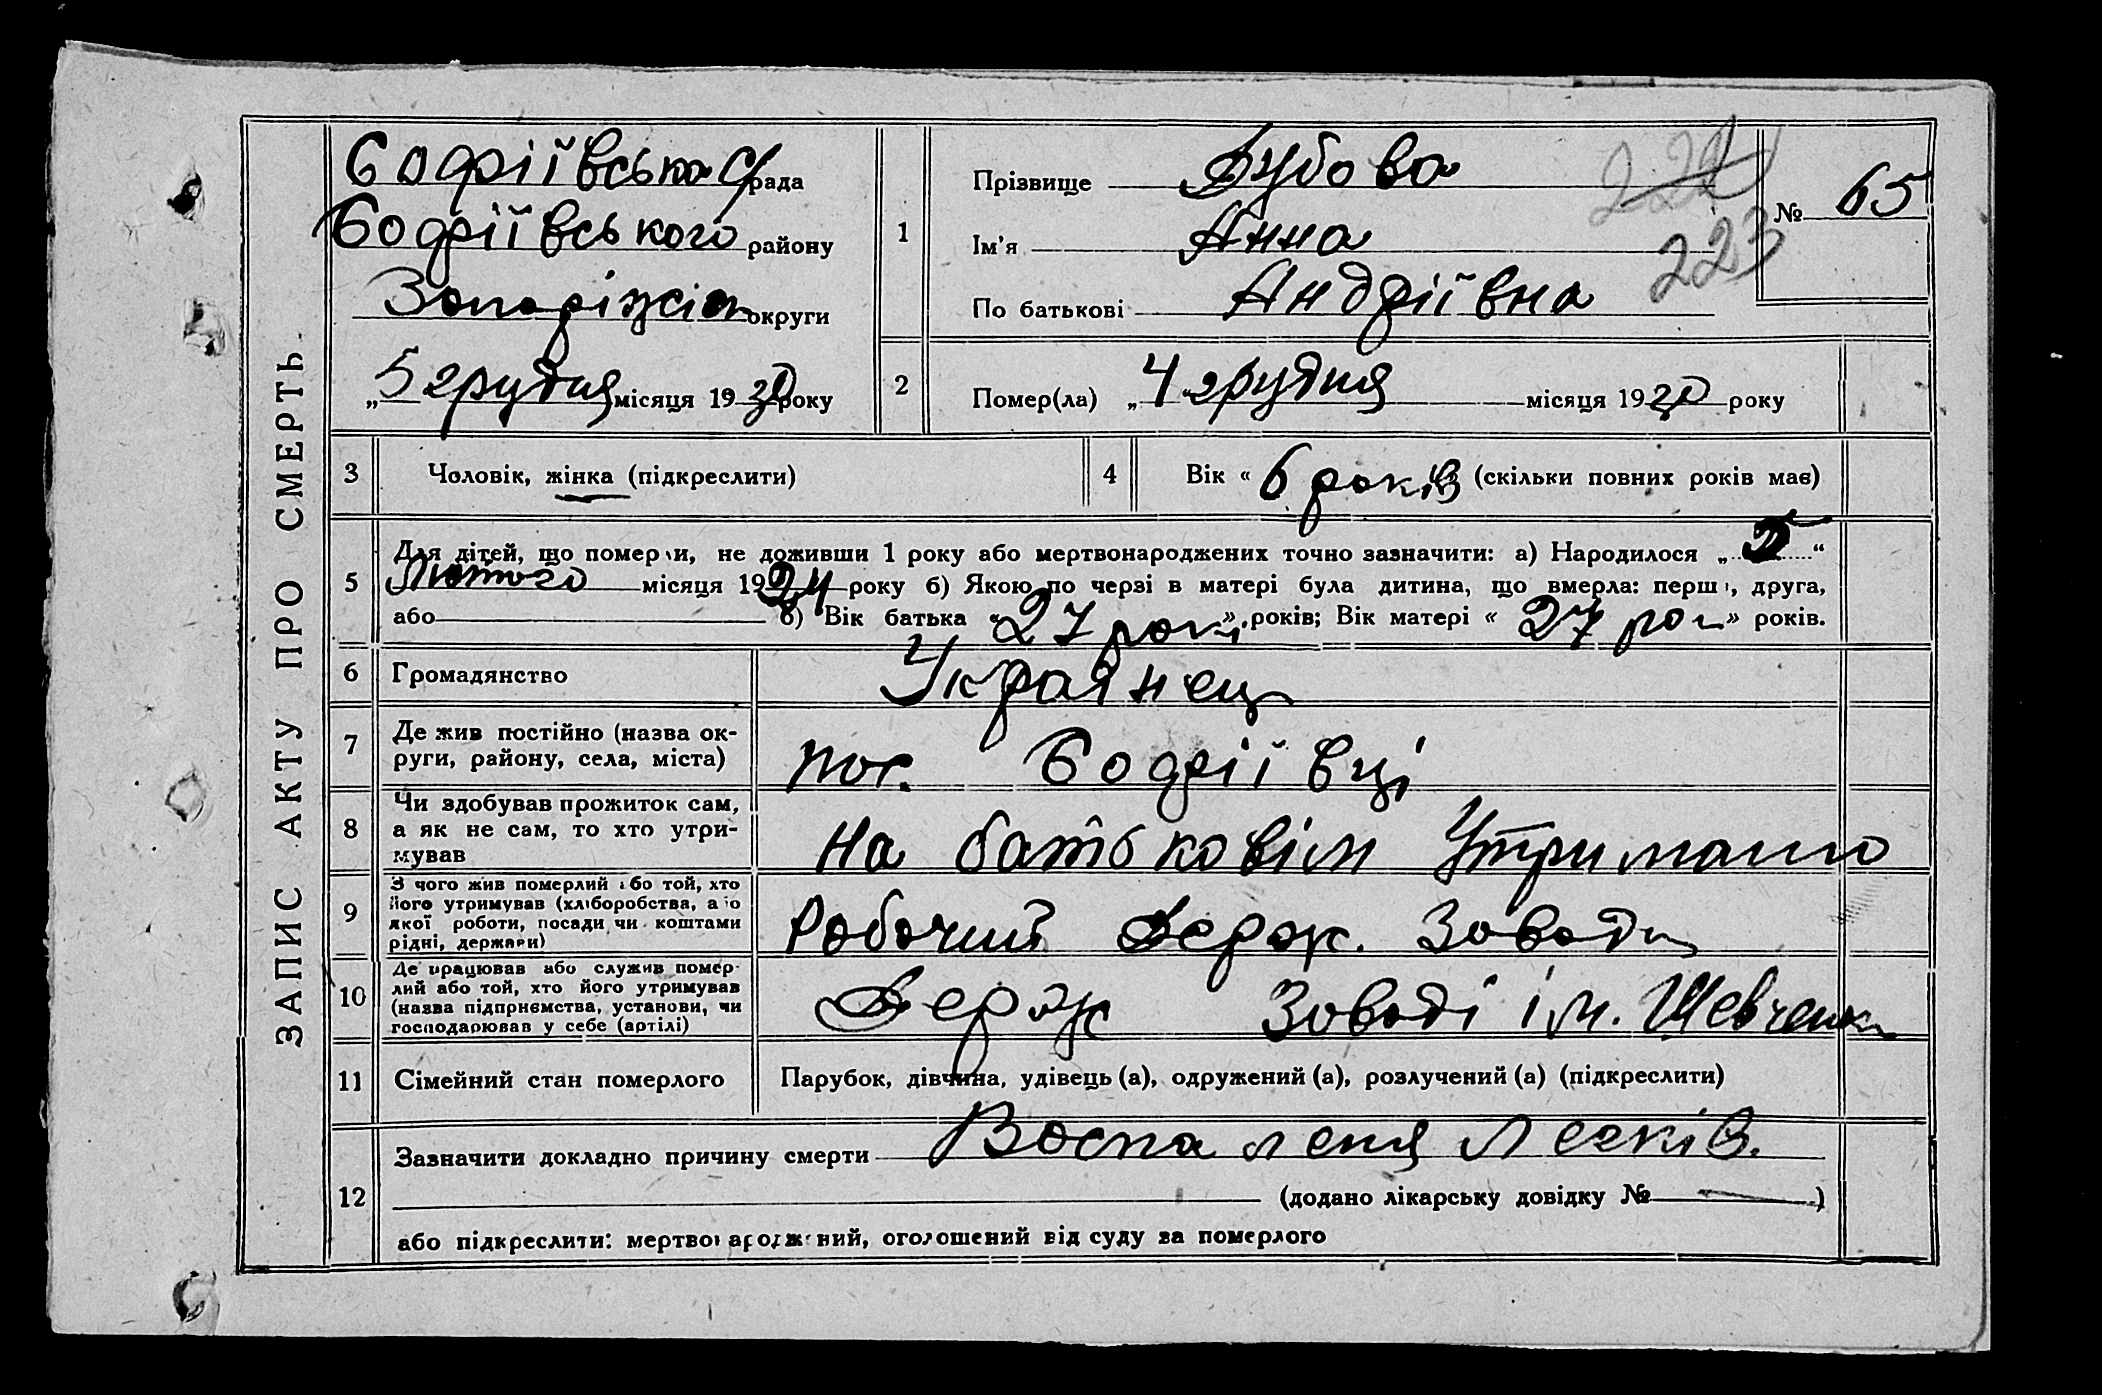 ЗАПИС АКТУ ПРО СМЕРТЬ.
Софіївська рада
Софіївського району
Запоріжськ округи
„5 грудня місяця 1930 року
1
Прізвище Дубова
Ім’я Анна
По батькові Андріївна
222
223
№ 65
2
Помер(ла) „4 грудня місяця 1930 року
3 Чоловік, жінка (підкреслити)
4 Вік « 6 років (скільки повних років має)
5 Для дітей, що померли, не доживши 1 року або мертвонароджених точно зазначити: а) Народилося „ “
Лютого місяця 1924 року б) Якою по черзі в матері була дитина, що вмерла: перша, друга,
або в) Вік батька « 27 рок » років; Вік матері « 27 рок » років.
6 Громадянство Українец
7 Де жив постійно (назва ок-
руги, району, села, міста) пос. Софіївці
8 Чи здобував прожиток сам,
а як не сам, то хто утри-
мував на батьковім утриманю
9 З чого жив померлий або той, хто
його утримував (хліборобства, або
якої роботи, посади чи коштами
рідні, держави) Робочий Держ. Завода
10 Де працював або служив помер-
лий або той, хто його утримував
(назва підприємства, установи, чи
господарював у себе (артілі) Держ Заводі ім. Шевченка
11 Сімейний стан померлого Парубок, дівчина, удівець (а), одружений (а), розлучений (а) (підкреслити)
12 Зазначити докладно причину смерти Воспаленя легків.
(додано лікарську довідку № )
або підкреслити: мертвонароджений, оголошений від суду за померлого